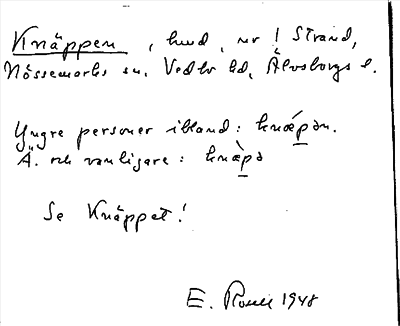 Knäppen, lund, nr 1 Strand,
Nössemarks sn, Vedbo hd, Älvsborgs l.
Yngre personer ibland: knæpən.
Ä. och vanligare: knæpə
Se Knäppet!
E. 1948